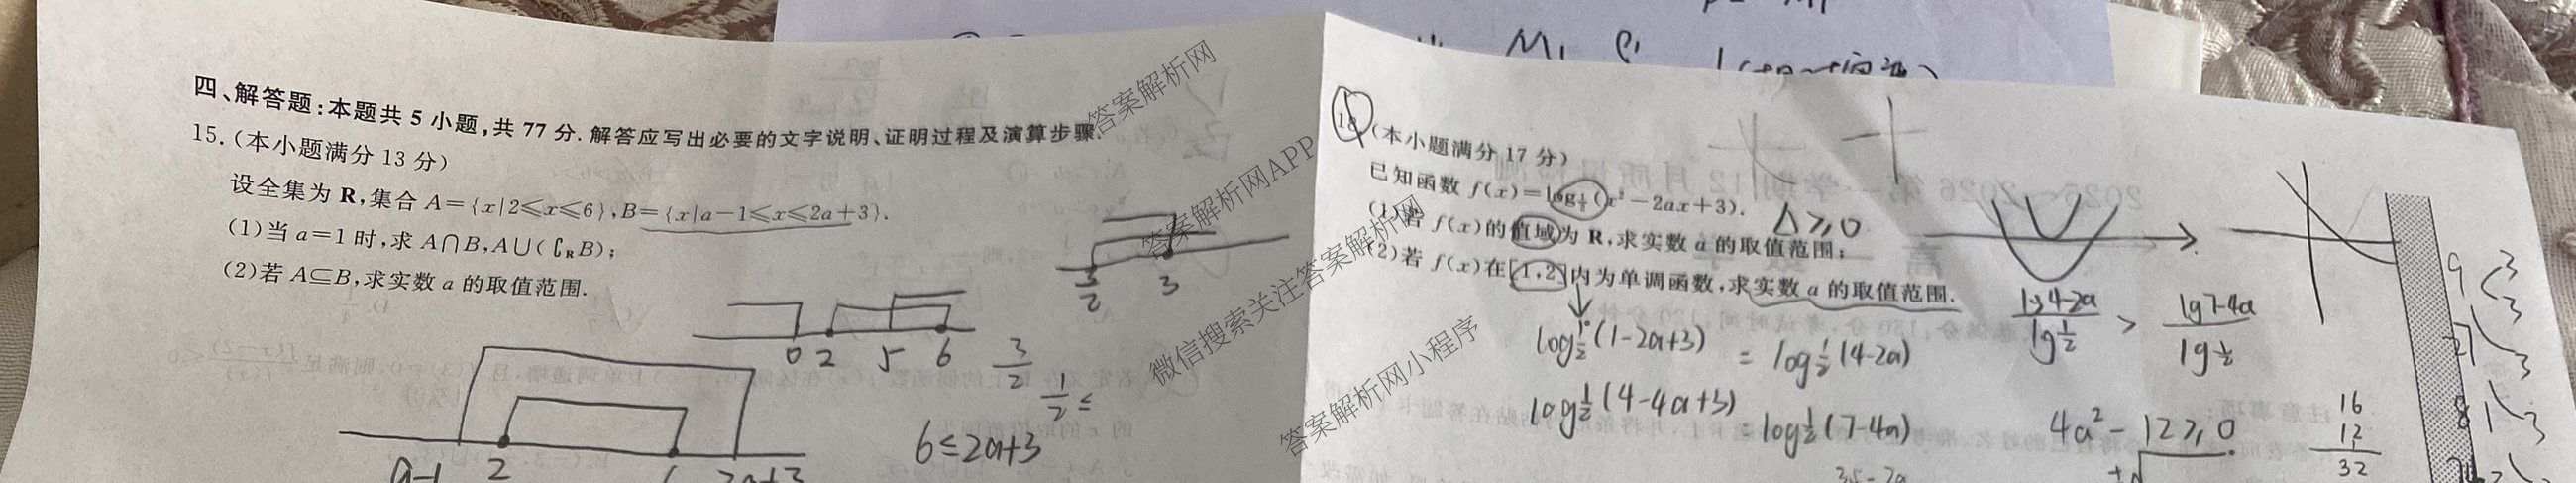 四、解答题:本题共 5 小题,共 77 分.解答应写出必要的文字说明、证明过程及演算步骤.
15.(本小题满分 13 分)
设全集为 R,集合 A={x|2≤x≤6},B={x|a-1≤x≤2a+3}.
(1)当 a=1 时,求 A∩B,A∪(∁RB);
(2)若 A⊆B,求实数 a 的取值范围.
0 2 5 6
3/2
1/2 ≤
3/2 3
a-1 2 6 2a+3
6≤2a+3
答案解析网
答案解析网APP
微信搜索关注答案解析网
答案解析网小程序
(本小题满分 17 分)
已知函数 f(x)=log1/2(x²-2ax+3).
(1)若 f(x)的值域为 R,求实数 a 的取值范围;
Δ≥0
(2)若 f(x)在[1,2]内为单调函数,求实数 a 的取值范围.
log1/2(1-2a+3) = log1/2(4-2a)
log1/2(4-4a+3) = log1/2(7-4a)
lg4-2a/lg1/2 > lg7-4a/lg1/2
4a²-12≥0
16
12
32
9 3
3
27 3
81 3